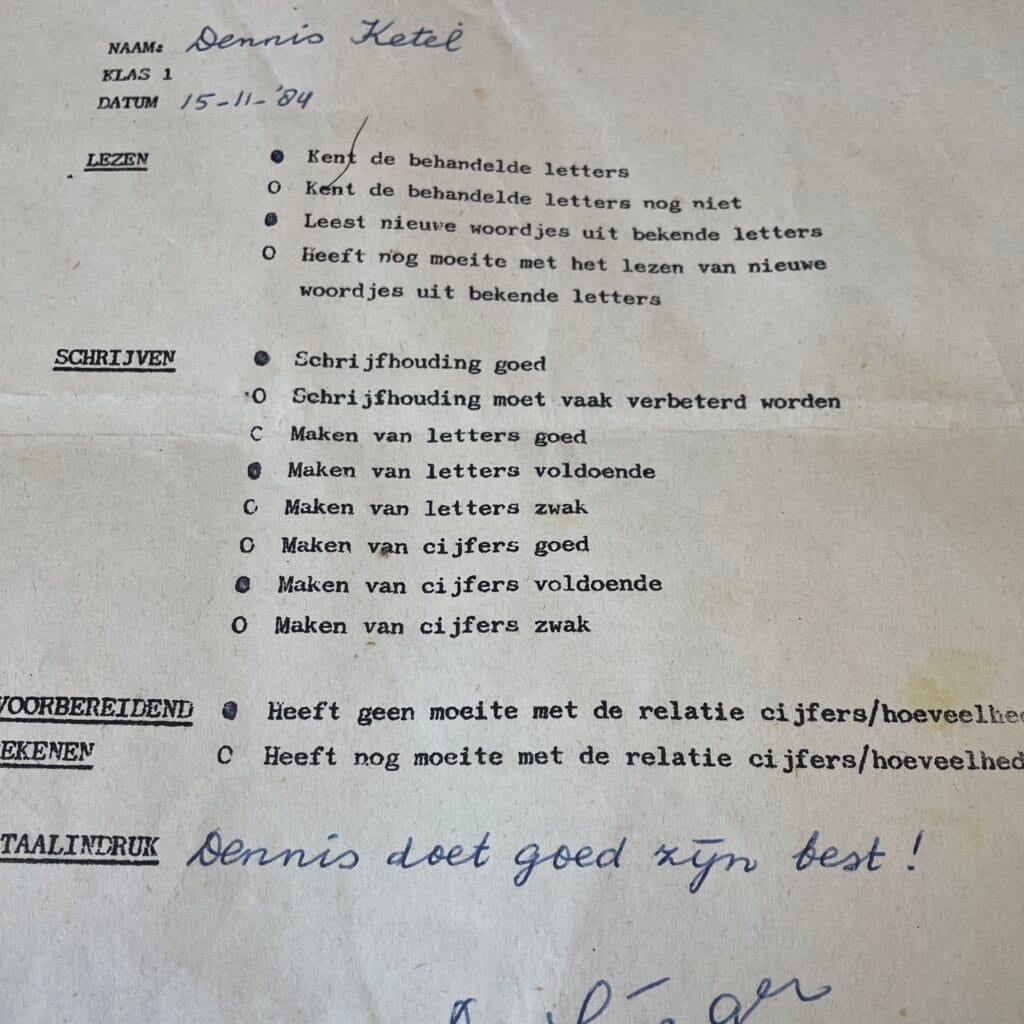 NAAM: Dennis Ketel
KLAS 1
DATUM 15-11-'84
LEZEN ● Kent de behandelde letters
O Kent de behandelde letters nog niet
● Leest nieuwe woordjes uit bekende letters
O Heeft nog moeite met het lezen van nieuwe
woordjes uit bekende letters
SCHRIJVEN ● Schrijfhouding goed
O Schrijfhouding moet vaak verbeterd worden
O Maken van letters goed
● Maken van letters voldoende
O Maken van letters zwak
O Maken van cijfers goed
● Maken van cijfers voldoende
O Maken van cijfers zwak
VOORBEREIDEND ● Heeft geen moeite met de relatie cijfers/hoeveelhe
EKENEN O Heeft nog moeite met de relatie cijfers/hoeveelhed
TAALINDRUK Dennis doet goed zijn best!